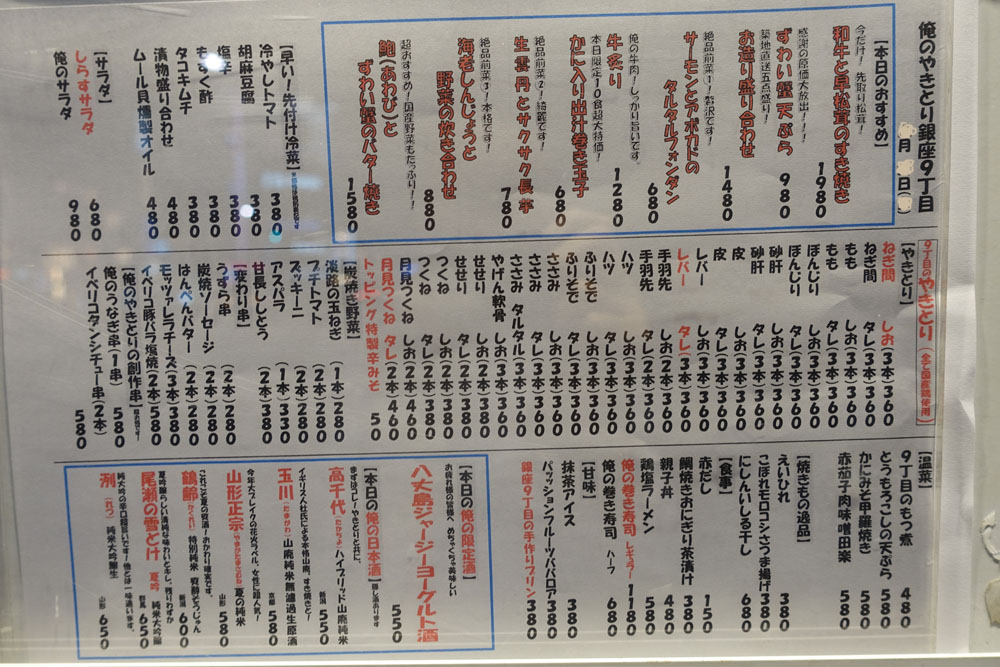 俺のやきとり銀座9丁目
月 日( )
【本日のおすすめ】
今だけ!先取り松茸!
和牛と早松茸のすき焼き 1980
感謝の原価大放出!!!
ずわい蟹天ぷら 980
築地直送五点盛り!
お造り盛り合わせ 1480
絶品前菜1!贅沢です!
サーモンとアボカドの
タルタルフォンダン 680
俺の牛肉!しっかり旨いです。
牛炙り 1280
本日限定10食超大特価!
かに入り出汁巻き玉子 680
絶品前菜2!綺麗です!
生雲丹とサクサク長芋 780
絶品前菜3!本格です!
海老しんじょうと
野菜の炊き合わせ 880
超おすすめ!国産野菜もたっぷり!!
鮑(あわび)と
ずわい蟹のバター焼き 1580
【早い!先付け冷菜】
冷やしトマト 380
胡麻豆腐 380
塩辛 380
もずく酢 380
タコキムチ 480
漬物盛り合わせ
ムール貝燻製オイル 480
【サラダ】
しらすサラダ 680
俺のサラダ 980
9丁目のやきとり(全て国産鶏使用)
【やきとり】
ねぎ間 しお(3本)360
ねぎ間 タレ(3本)360
もも しお(3本)360
もも タレ(3本)360
ぼんじり しお(3本)360
ぼんじり タレ(3本)360
砂肝 しお(3本)360
砂肝 タレ(3本)360
皮 しお(3本)360
皮 タレ(3本)360
レバー しお(3本)360
レバー タレ(3本)360
手羽先 しお(2本)360
手羽先 タレ(2本)360
ハツ しお(3本)360
ハツ タレ(3本)360
ふりそで しお(3本)360
ふりそで タレ(3本)360
ささみ しお(3本)360
ささみ タレ(3本)360
ささみ タルタル(3本)360
やげん軟骨 しお(3本)360
せせり しお(2本)380
せせり タレ(2本)380
つくね しお(2本)380
つくね タレ(2本)380
月見つくね しお(2本)460
月見つくね タレ(2本)460
トッピング特製辛みそ 50
【炭焼き野菜】
淡路の玉ねぎ (1本)280
プチトマト (2本)280
ズッキーニ (2本)280
アスパラ (1本)330
甘長ししとう (2本)380
【変わり串】
うずら串 (2本)280
炭焼ソーセージ (2本)280
はんぺんバター (2本)280
モッツァレラチーズ(3本)380
イベリコ豚バラ塩焼(2本)580
【俺のやきとりの創作串】
俺のうなぎ串(1串) 580
イベリコタンシチュー串(2本) 580
【温菜】
9丁目のもつ煮 480
とうもろこしの天ぷら 580
かにみそ甲羅焼き 580
赤茄子肉味噌田楽 580
【焼きもの逸品】
えいひれ 380
こぼれモロコシさつま揚げ 380
にしんいしる干し 680
【食事】
赤だし 150
鯛焼きおにぎり茶漬け 380
親子丼 480
鶏塩ラーメン 580
俺の巻き寿司 レギュラー 1180
俺の巻き寿司 ハーフ 680
【甘味】
抹茶アイス 380
パッションフルーツババロア 380
銀座9丁目の手作りプリン 380
【本日の俺の限定酒】
お疲れ様の皆様へ めちゃくちゃ美味しい
八丈島ジャージーヨーグルト酒 550
【本日の俺の日本酒】
まずはコレーやきとりと共に。
高千代(たかちよ)ハイブリッド山廃純米
新潟 550
イギリス人杜氏による本格山廃。すき焼きと!
玉川(たまがわ)山廃純米無濾過生原酒
京都 580
今年大ブレイクの花火ラベル。女性に超人気!
山形正宗(やまがたまさむね)夏の純米
山形 580
これぞ夏の賀酒!おかわり確実です。
鶴齢(かくれい)特別純米
新潟 600
夏吟醸らしい清純な味わいとキレ。残りわずか
尾瀬の雪どけ 夏吟 純米大吟醸
群馬 650
純大吟の辛口超旨いです!他とは一味違います。
洌(れつ)純米大吟醸生
山形 650